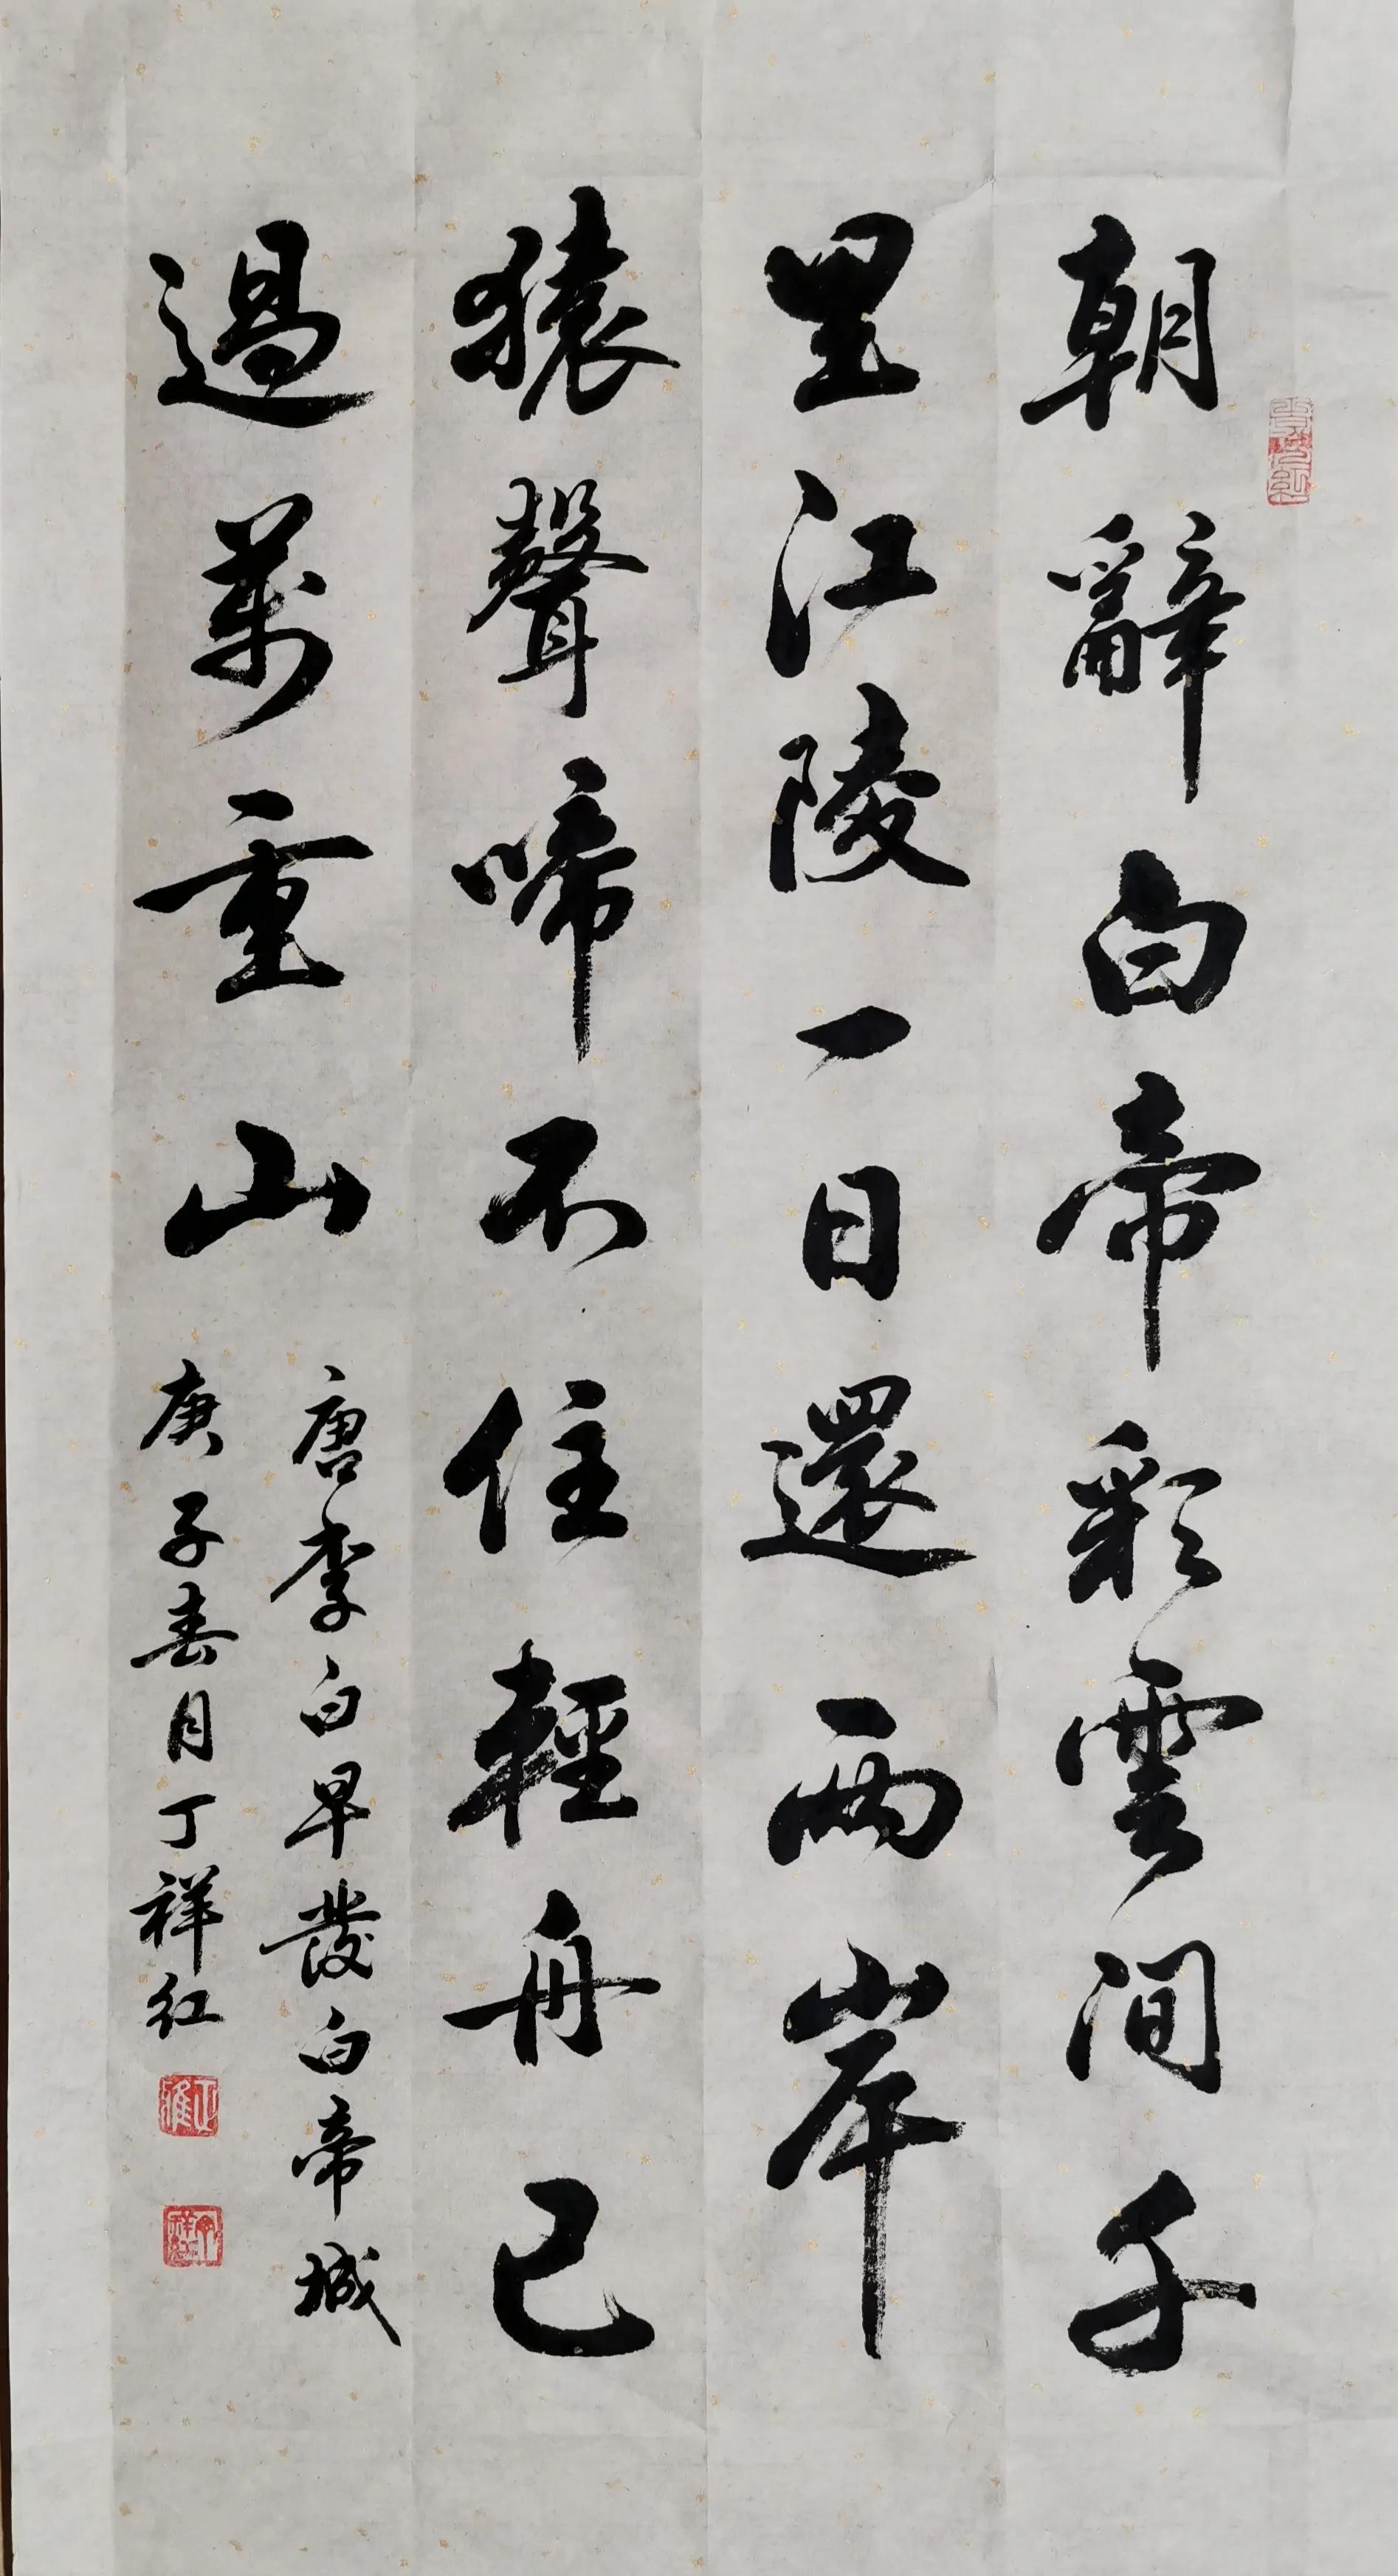 朝辭白帝彩雲間千
里江陵一日還兩岸
猿聲啼不住輕舟已
過萬重山
唐李白早發白帝城
庚子春月丁祥紅